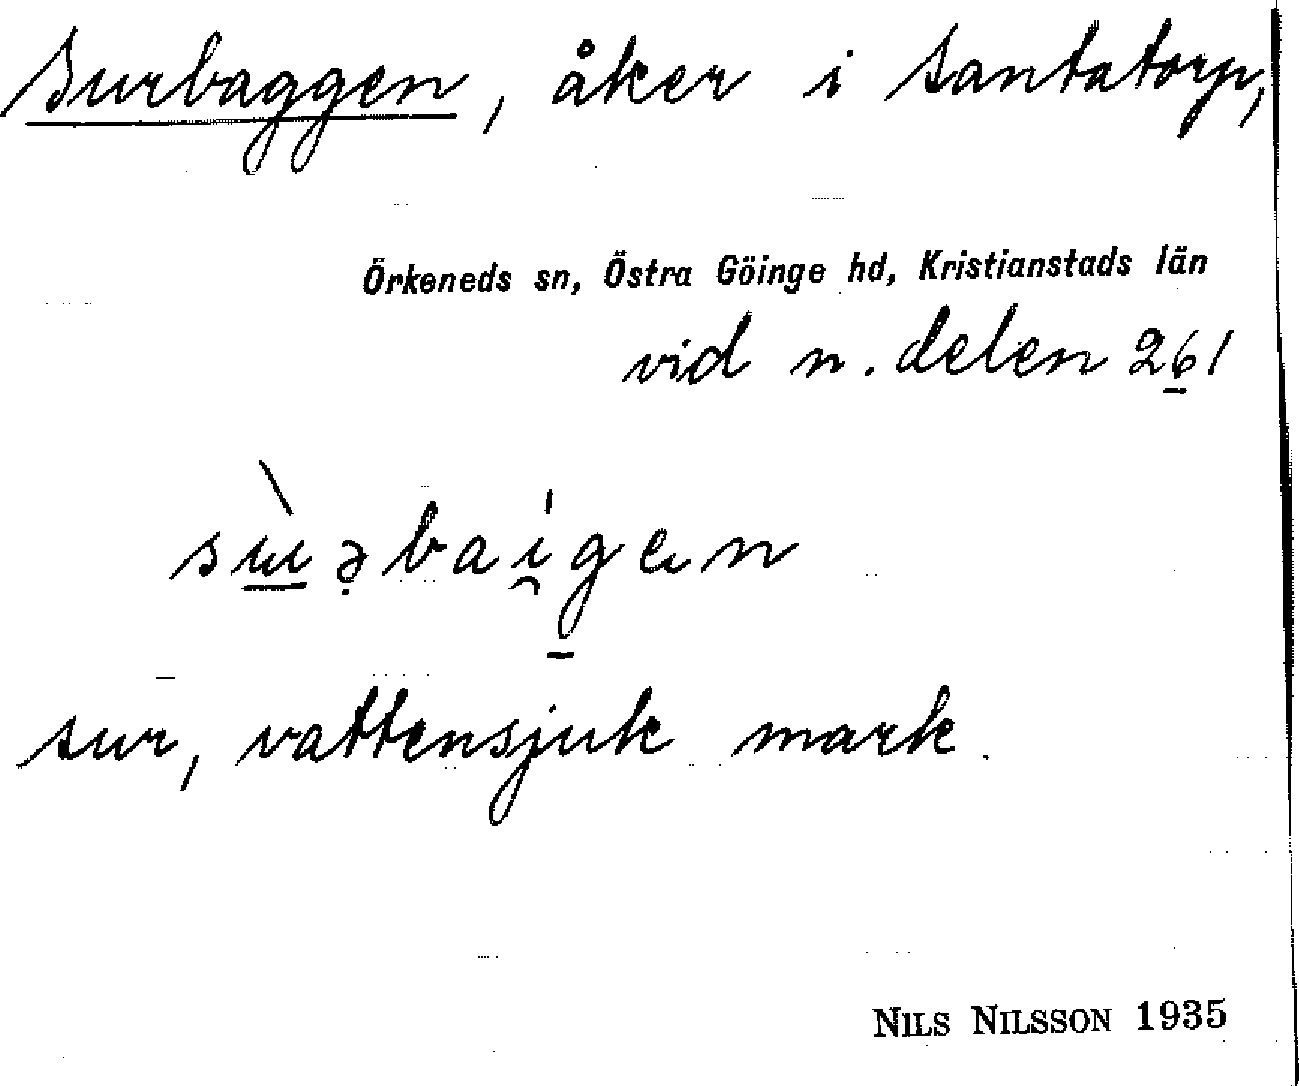 Surbaggen, åker i Santatorp,
Örkeneds sn, Östra Göinge hd, Kristianstads län
vid n. delen 261
sɯ̀ə̣bai̯gen
sur, vattensjuk mark.
NILS NILSSON 1935